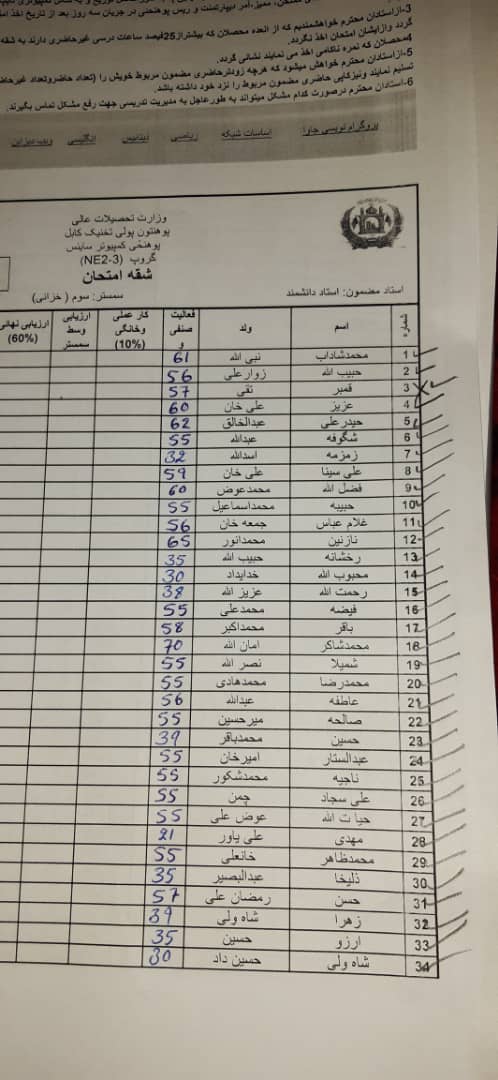 3-ازاستادان محترم خواهشمندیم که از آنعده محصلان که بیشتراز25فیصد ساعات درسی غیرحاضری دارند به شقه
گردد وازایشان امتحان اخذ نگردد.
4-محصلان که نمره ناکامی اخذ می نمایند نشانی گردد.
5-ازاستادان محترم خواهش میشود که هرچه زودترحاضری مضمون مربوط خویش را (تعداد حاضروتعداد غیرحاضر
تسلیم نمایند ونیزکاپی حاضری مضمون مربوط را نزد خود داشته باشد.
6-استادان محترم درصورت کدام مشکل میتواند به طورعاجل به مدیریت تدریسی جهت رفع مشکل تماس بگیرند.
پروگرام نویسی جاوا اساسات شبکه ریاضی دیتابیس انگلیسی ویب دیزاین
وزارت تحصیلات عالی
پوهنتون پولی تخنیک کابل
پوهنځی کمپیوتر ساینس
گروپ (NE2-3)
شقه امتحان
استاد مضمون: استاد دانشمند سمستر: سوم ( خزانی)
شماره اسم ولد فعالیت صنفی و کار عملی وخانگی (10%) ارزیابی وسط سمستر ارزیابی نهائی (60%)
1 محمدشاداب نبی الله 61
2 حبیب الله زوارعلی 56
3 قمبر تقی 57
4 عزیز علی خان 60
5 حیدرعلی عبدالخالق 62
6 شگوفه عبدالله 55
7 زمزمه اسدالله 32
8 علی سینا علی خان 59
9 فضل الله محمدعوض 60
10 حبیبه محمداسماعیل 55
11 غلام عباس جمعه خان 56
12 نازنین محمدانور 65
13 رخشانه حبیب الله 35
14 محبوب الله خدایداد 30
15 رحمت الله عزیز الله 38
16 فیضه محمدعلی 55
17 باقر محمداکبر 58
18 محمدشاکر امان الله 70
19 شمیلا نصر الله 55
20 محمدرضا محمدهادی 55
21 عاطفه عبدالله 56
22 صالحه میرحسین 55
23 حسین محمدباقر 39
24 عبدالستار امیرخان 55
25 ناجیه محمدشکور 55
26 علی سجاد چمن 55
27 حیا ت الله عوض علی 55
28 مهدی علی یاور 21
29 محمدظاهر خانعلی 55
30 ذلیخا عبدالبصیر 35
31 حسن رمضان علی 57
32 زهرا شاه ولی 39
33 ارزو حسین 35
34 شاه ولی حسین داد 30